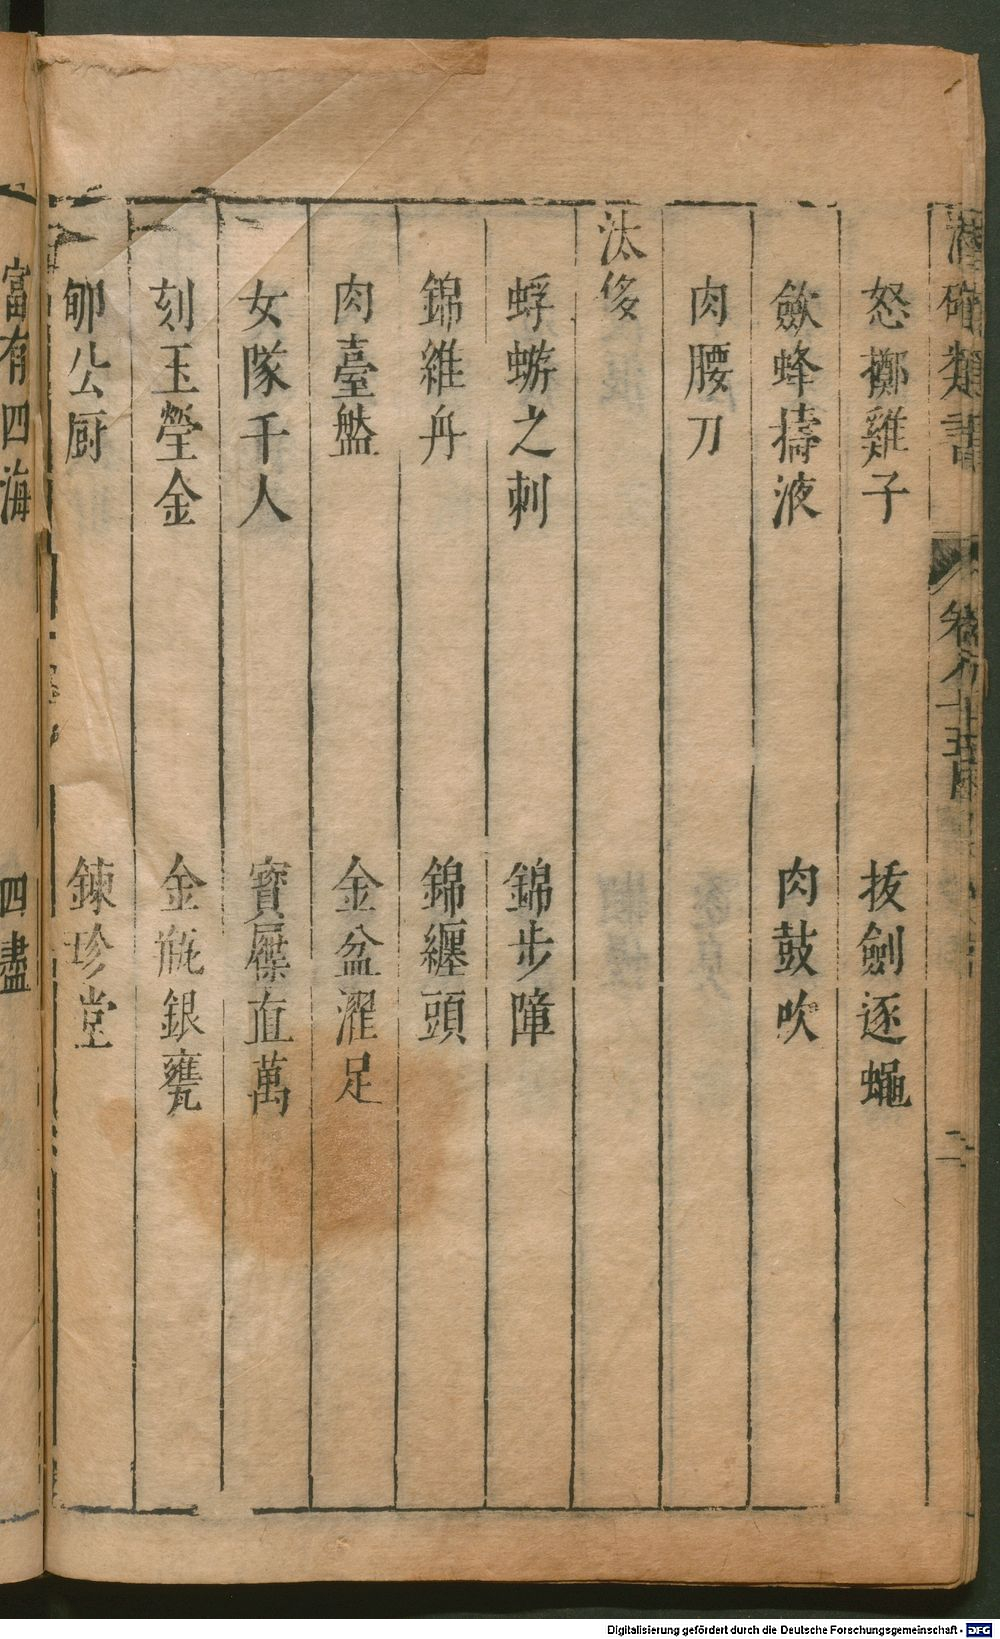 潛確類書 卷八十五 二
怒擲雞子 拔劍逐蠅
斂蜂擣液 肉鼓吹
肉腰刀
汰侈
蜉蝣之刺 錦步障
錦維舟 錦纏頭
肉臺盤 金盆濯足
女隊千人 寶屧直萬
刻玉瑩金 金瓶銀甕
郇公厨 鍊珍堂
富有四海 四盡
Digitalisierung gefördert durch die Deutsche Forschungsgemeinschaft - DFG